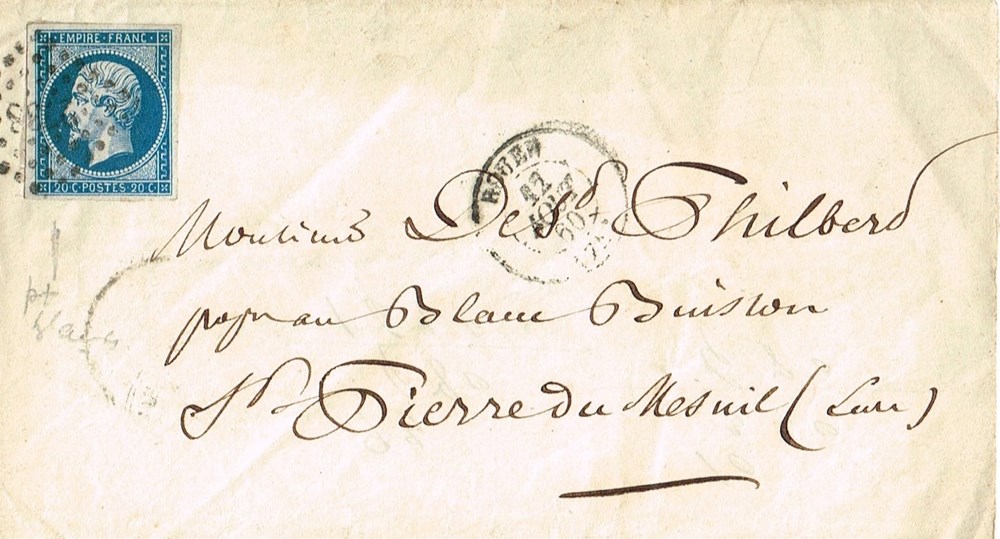 EMPIRE FRANC
20 C POSTES 20 C
ROUEN
AOUT
60
Monsieur De St Philberd
au Blanc Buisson
St Pierre du Mesnil (Eure)
pt